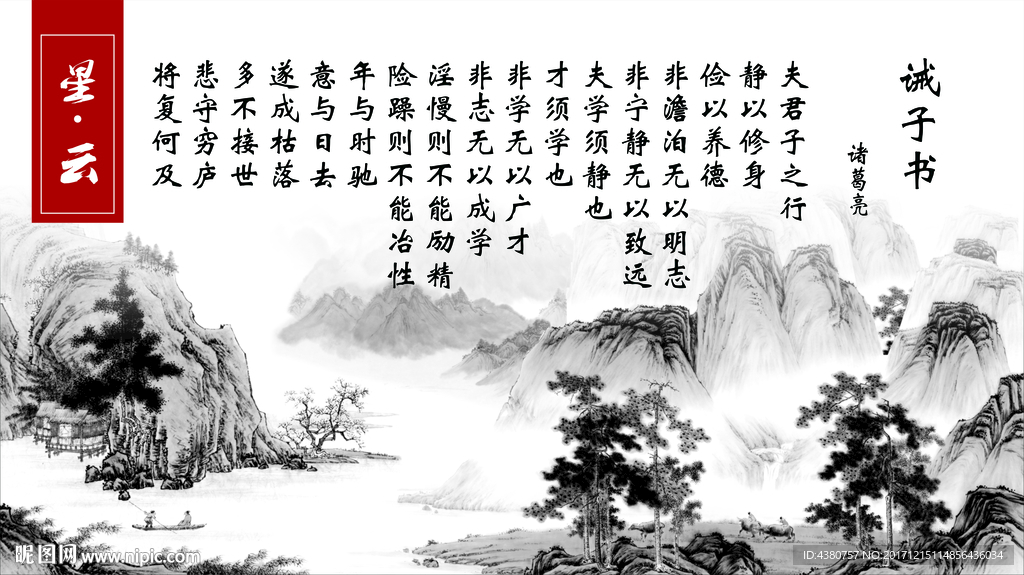 诫子书
诸葛亮
夫君子之行
静以修身
俭以养德
非澹泊无以明志
非宁静无以致远
夫学须静也
才须学也
非学无以广才
非志无以成学
淫慢则不能励精
险躁则不能冶性
年与时驰
意与日去
遂成枯落
多不接世
悲守穷庐
将复何及
星·云
昵图网 www.nipic.com
ID:4380757 NO:20171215114856436034